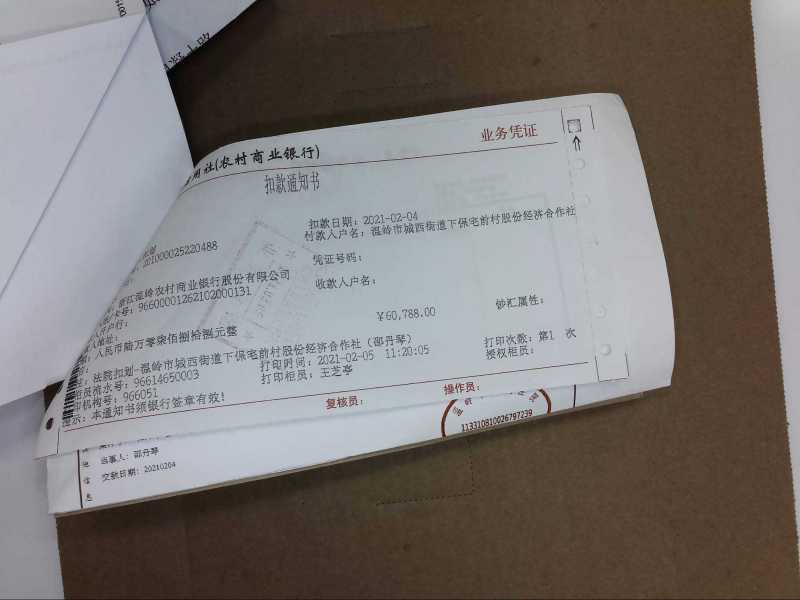 用社(农村商业银行)
业务凭证
扣款通知书
扣款日期：2021-02-04
201000025220488
付款人户名：温岭市城西街道下保宅前村股份经济合作社
凭证号码：
浙江温岭农村商业银行股份有限公司
收款人户名：
卡号：96600001262102000131
开户行：
人地址：
￥60,788.00
钞汇属性：
人民币陆万零柒佰捌拾捌元整
法院扣划-温岭市城西街道下保宅前村股份经济合作社（邵丹琴）
柜员流水号：96614650003
打印时间：2021-02-05 11:20:05
打印次数：第1 次
印机构号：966051
打印柜员：王芝亭
授权柜员：
提示：本通知书须银行签章有效！
复核员：
操作员：
113310810026797239
当事人：邵丹琴
交款日期：20210204
信
息